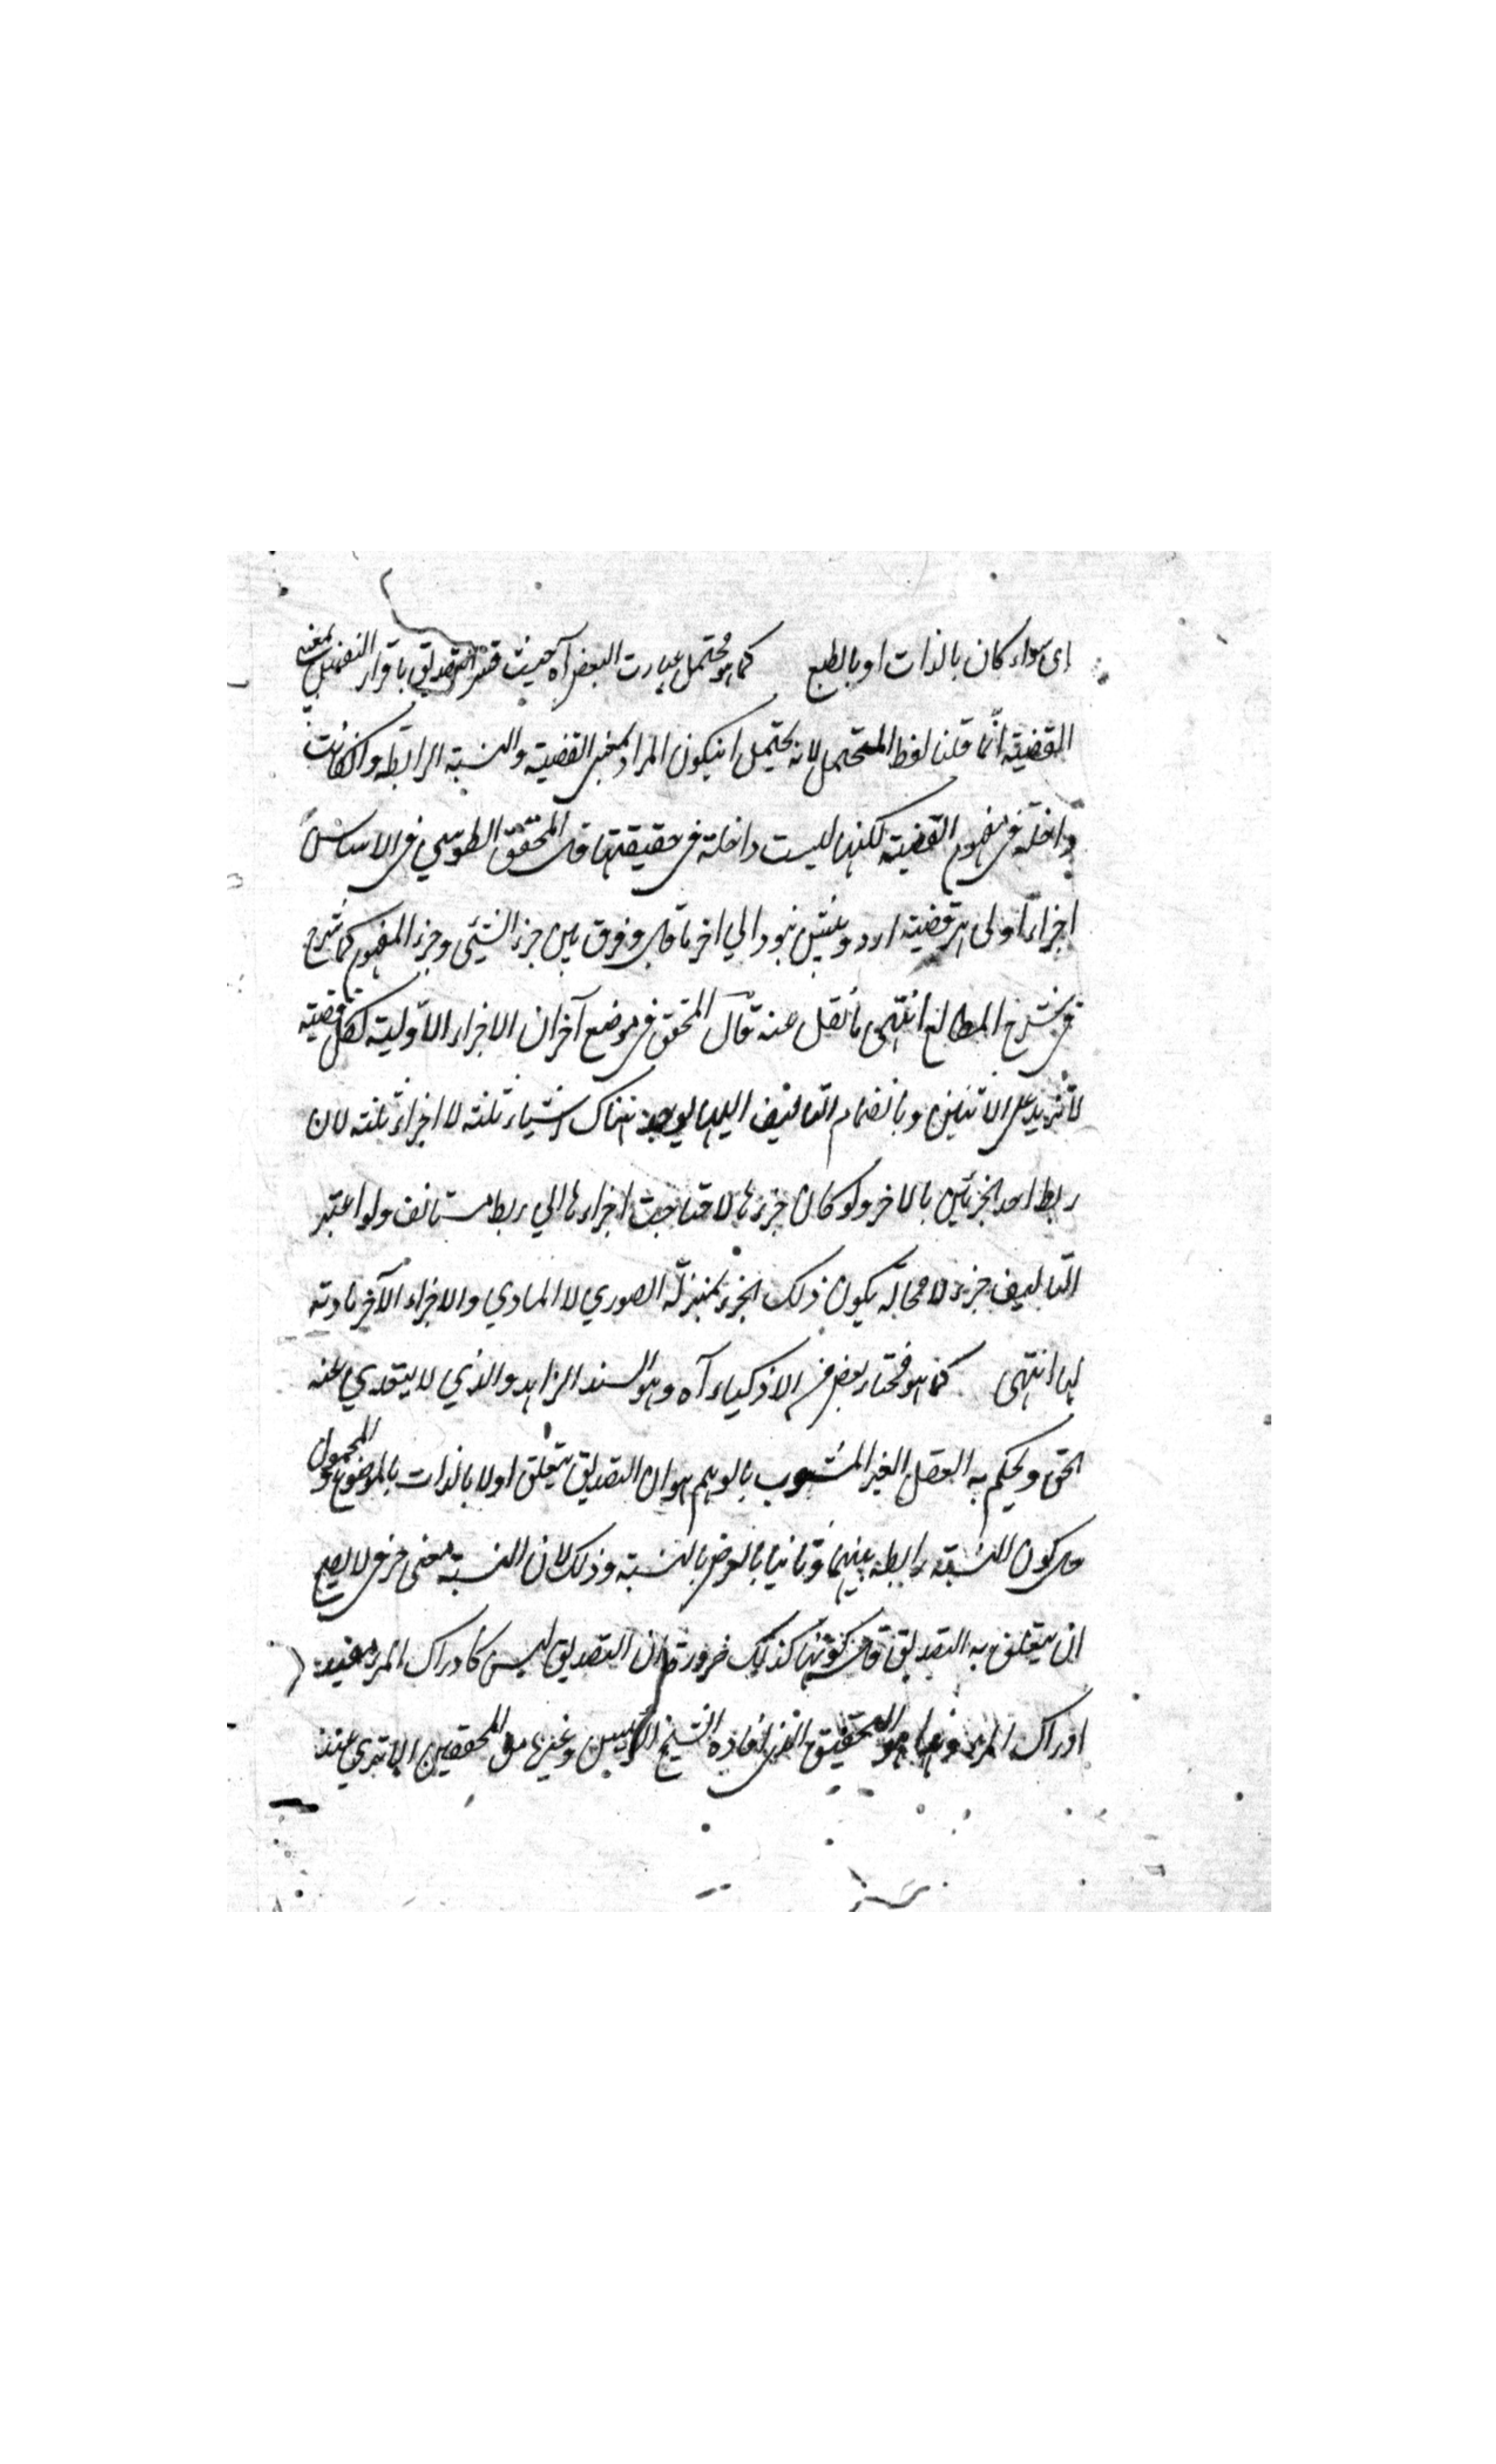 اى سواء كان بالذات او بالطبع كما هو محتمل عبارت البعض آه حيث فسر التصديق باقرار النفس بمعنى
القضية انّما قلنا لفظ المحتمل لانه يحتمل ان يكون المراد بمعنى القضية والنسبة الرابطه وانكانت
داخلة فى مفهوم القضية لكنها ليست داخلة فى حقيقتها قال المحقق الطوسي فى الاساس
اجزاء اولى هر قضيه از دو بيش نبود الي اخر ما قال وفرق بين جزء الشيئى وجزء المفهوم كما شرح
فى شرح المطالع انتهى ما نقل عنه قال المحقق فى موضع آخر ان الاجزاء الاولية لكل قضية
لا تزيد على الاثنين وبانضمام التاليف اليها يوجد هناك اشياء ثلثه لا اجزاء ثلثه لان
ربط احد الجزئين بالاخر ولو كان جزءها لاحتاجت اجزاءها الي ربط مستانف ولو اعتبر
التاليف جزء لا محالة يكون ذلك الجزء بمنزلة الصوري لا المادي والاجزاء الآخر مادته
لها انتهى كما هو مختار بعض من الاذكياء آه وهو السند الزاهد والذي لا يتعدي عنه
الحق ويحكم به العقل الغير المشوب بالوهم هو ان التصديق يتعلق اولا بالذات بالموضوع والمحمول
حال كون النسبة رابطه بينهما وثانيا بالعرض بالنسبة وذلك لان النسبة معنى حرفى لا يصح
ان يتعلق به التصديق حال كونها كذلك ضرورة ان التصديق ليس كادراك المرء عنيد
ادراك المرء وهذا هو التحقيق الذى افاده الشيخ الرئيس وغيرها من المحققين الا